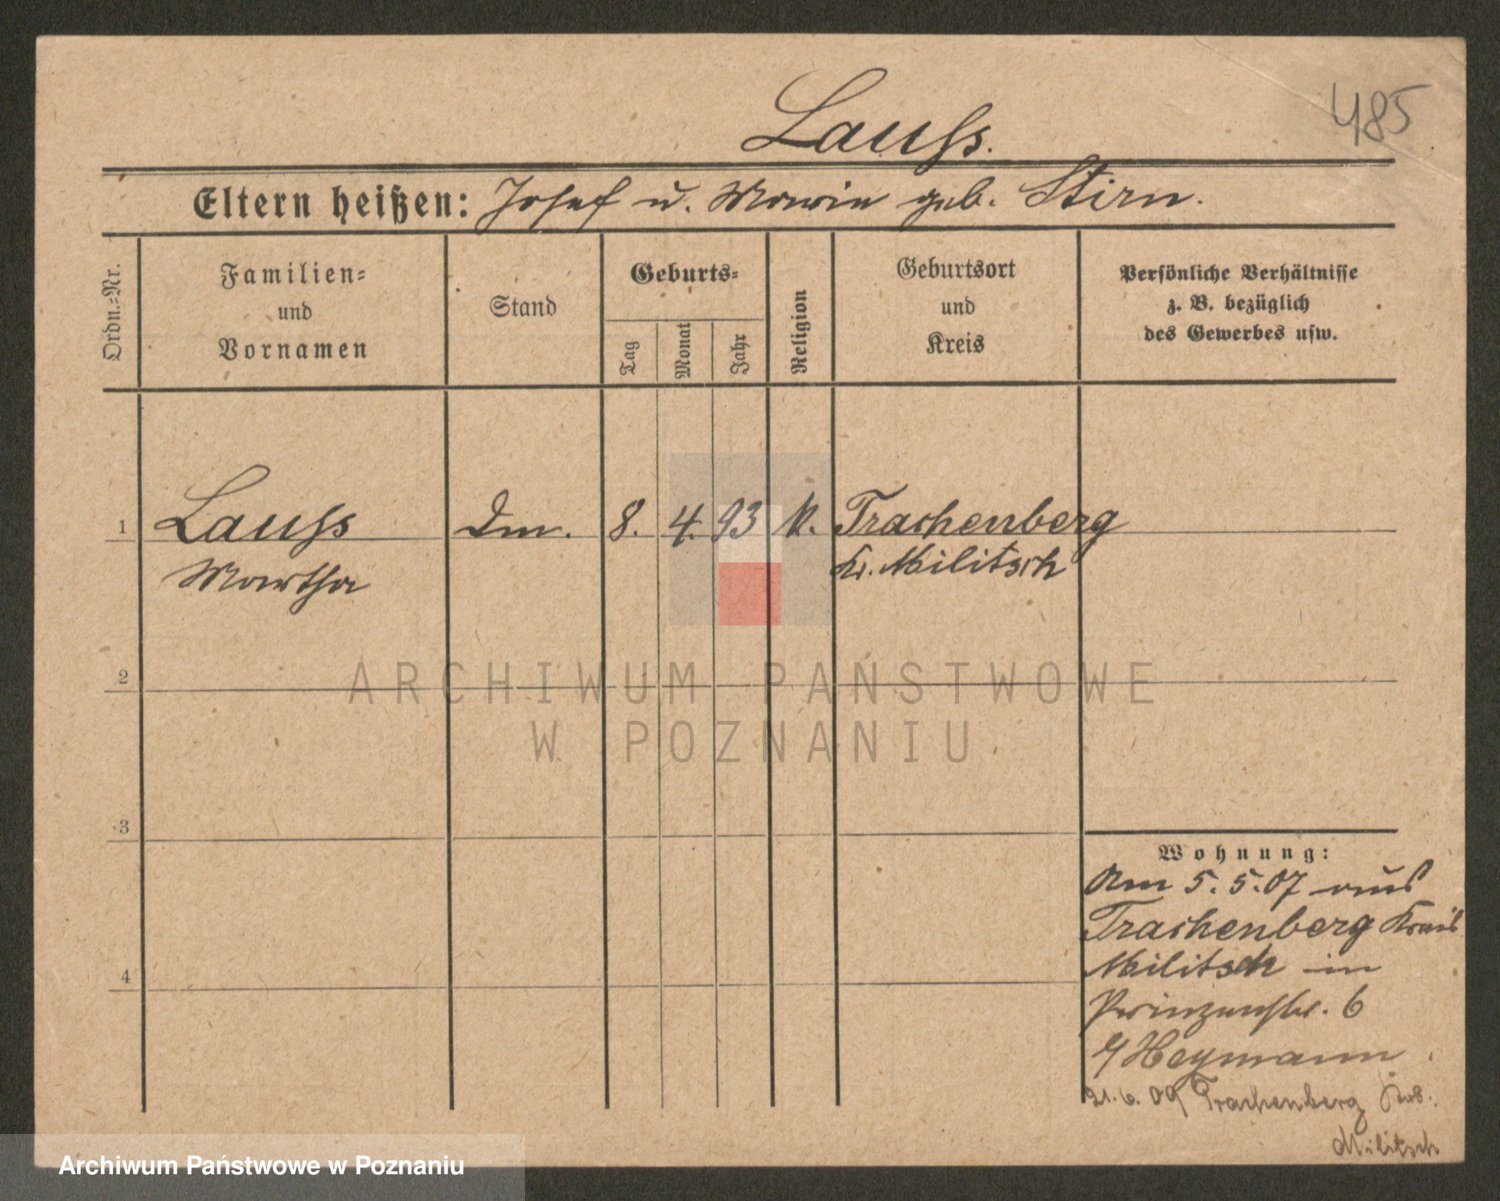 Lauſs.
485
Eltern heißen: Josef u. Marie geb. Stirn.
Ordn.=Nr.
Familien=
und
Vornamen
Stand
Geburts=
Tag
Monat
Jahr
Religion
Geburtsort
und
Kreis
Persönliche Verhältnisse
z. B. bezüglich
des Gewerbes usw.
1 Lauſs 8. 4. 93 k. Trachenberg
Martha Kr. Militsch
2
3
4
Wohnung:
Am 5.5.07 aus
Trachenberg Kreis
Militsch in
Prinzenstr. 6
b/Heymann
21.6.09 Trachenberg Krs.
Militsch
ARCHIWUM PAŃSTWOWE
W POZNANIU
Archiwum Państwowe w Poznaniu